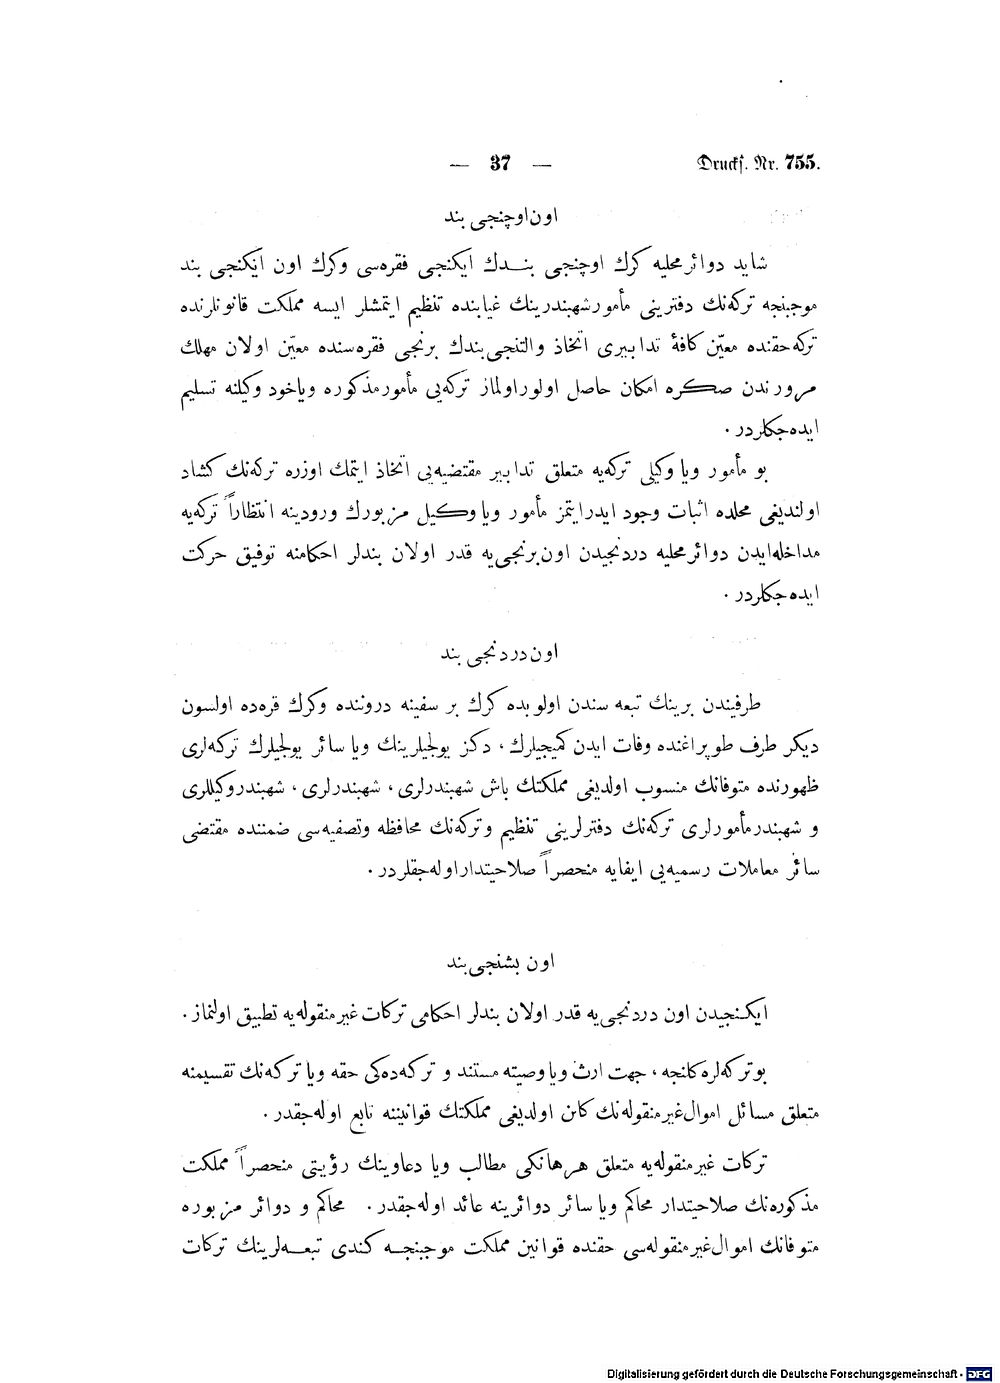 — 37 —
Drucks. Nr. 755.
اون اوچنجی بند
شاید دوائر محلیه كرك اوچنجی بنـــدك ایكنجی فقره‌سی وكرك اون ایكنجی بند
موجبنجه تركه‌نك دفترینی مأمور شهبندرینك غیابنده تنظیم ایتمشلر ایسه مملكت قانونلرنده
تركه حقنده معیّن كافهٔ تدابیری اتخاذ والتنجی بندك برنجی فقره‌سنده معیّن اولان مهلك
مرورندن صكره امكان حاصل اولور اولماز تركه‌یی مأمور مذكوره ویاخود وكیلنه تسلیم
ایده‌جكلردر .
بو مأمور ویا وكیلی تركه‌یه متعلق تدابیر مقتضیه‌یی اتخاذ ایتمك اوزره تركه‌نك كشاد
اولندیغی محلده اثبات وجود ایدر ایتمز مأمور ویا وكیل مزبورك ورودینه انتظاراً تركه‌یه
مداخله ایدن دوائر محلیه دردنجیدن اون برنجی‌یه قدر اولان بندلر احكامنه توفیق حركت
ایده‌جكلردر .
اون دردنجی بند
طرفیندن برینك تبعه سندن اولوبده كرك بر سفینه دروننده وكرك قره‌ده اولسون
دیكر طرف طوپراغنده وفات ایدن كمیجیلرك ، دكز یولجیلرینك ویا سائر یولجیلرك تركه‌لری
ظهورنده متوفانك منسوب اولدیغی مملكتك باش شهبندرلری ، شهبندرلری ، شهبندر وكیللری
و شهبندر مأمورلری تركه‌نك دفترلرینی تنظیم و تركه‌نك محافظه وتصفیه‌سی ضمننده مقتضی
سائر معاملات رسمیه‌یی ایفایه منحصراً صلاحیتدار اوله‌جقلردر .
اون بشنجی بند
ایكـنجیدن اون دردنجی‌یه قدر اولان بندلر احكامی تركات غیر منقوله‌یه تطبیق اولنماز .
بو تركه‌لره كلنجه ، جهت ارث ویا وصیته مستند و تركه‌ده‌كی حقه ویا تركه‌نك تقسیمنه
متعلق مسائل اموال غیر منقوله‌نك كائن اولدیغی مملكتك قوانیننه تابع اوله‌جقدر .
تركات غیر منقوله‌یه متعلق هر هانكی مطالب ویا دعاوینك رؤیتی منحصراً مملكت
مذكوره‌نك صلاحیتدار محاكم ویا سائر دوائرینه عائد اوله‌جقدر . محاكم و دوائر مزبوره
متوفانك اموال غیر منقوله‌سی حقنده قوانین مملكت موجبنجـه كندی تبعـه‌لرینك تركات
Digitalisierung gefördert durch die Deutsche Forschungsgemeinschaft - DFG